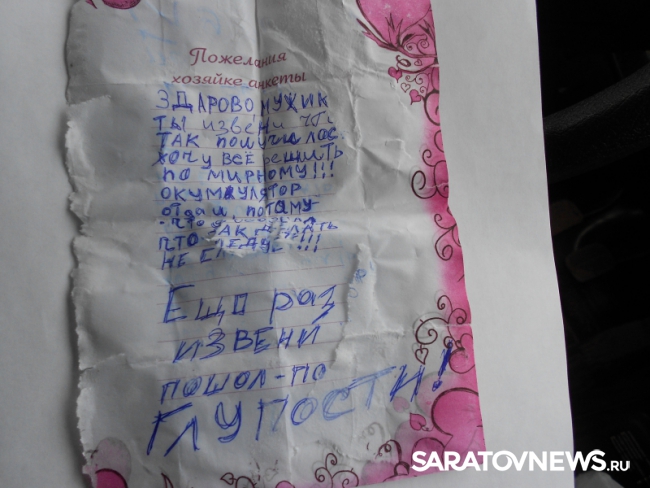 Пожелания
хозяйке анкеты
ЗДАРОВО МУЖИК
ТЫ извени что
ТАК получилос.
ХОЧУ ВСЁ решить
по мирному!!!
ОКУМУЛЯТОР
отдай потаму
что
ЧТО ТАК ДЕЛАТЬ
НЕ СЛЕДУЕТ!!!
Ещо раз
ИЗВЕНИ
пошол-по
ГЛУПОСТИ!
SARATOVNEWS.RU